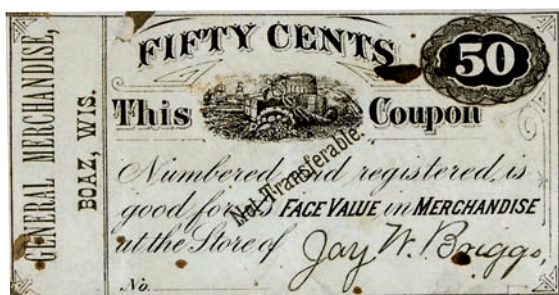 GENERAL MERCHANDISE,
BOAZ, WIS.
FIFTY CENTS
50
This Coupon
Not Transferable.
Numbered and registered is
good for its FACE VALUE in MERCHANDISE
at the Store of Jay W. Briggs,
No.